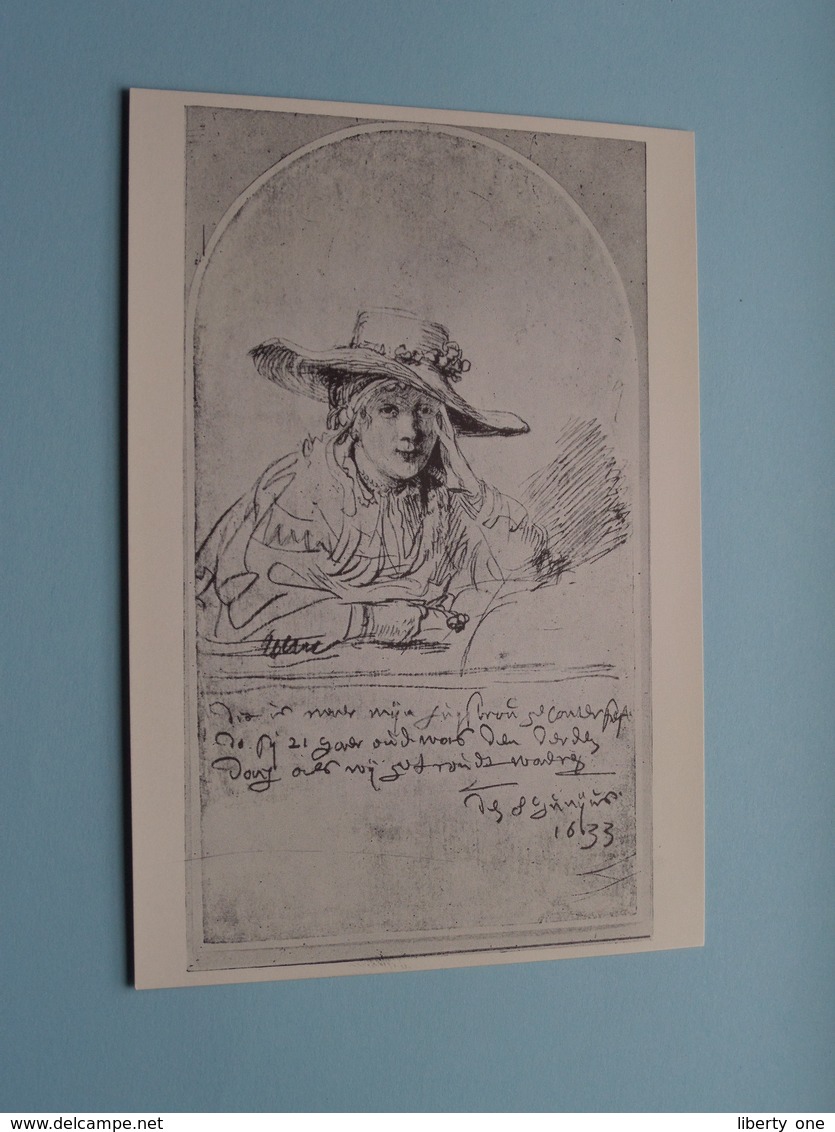 dit is naer mijn huysvrou geconterfeyt
do sij 21 jaer oud was den derden
dach als wij getroudt waeren
den 8 junijus
1633
www.delcampe.net
liberty one